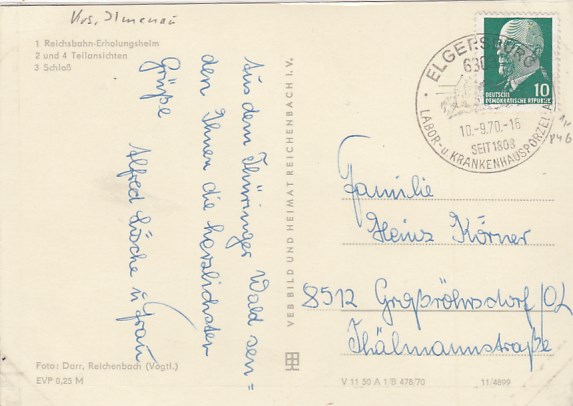 Krs. Ilmenau
1 Reichsbahn-Erholungsheim
2 und 4 Teilansichten
3 Schloß
Aus dem Thüringer Wald sen=
den Ihnen die herzlichsten
Grüße
Alfred Lösche u. Frau
Foto: Darr, Reichenbach (Vogtl.)
EVP 0,25 M
VEB BILD UND HEIMAT REICHENBACH I. V.
ELGERSBURG
630
10.-9.70.-16
SEIT 1808
LABOR- u. KRANKENHAUSPORZELLA
10
DEUTSCHE
DEMOKRATISCHE REPUBLIK
Familie
Heinz Körner
8512 Großröhrsdorf/OL
Thälmannstraße
V 11 50 A 1/B 478/70
11/4899